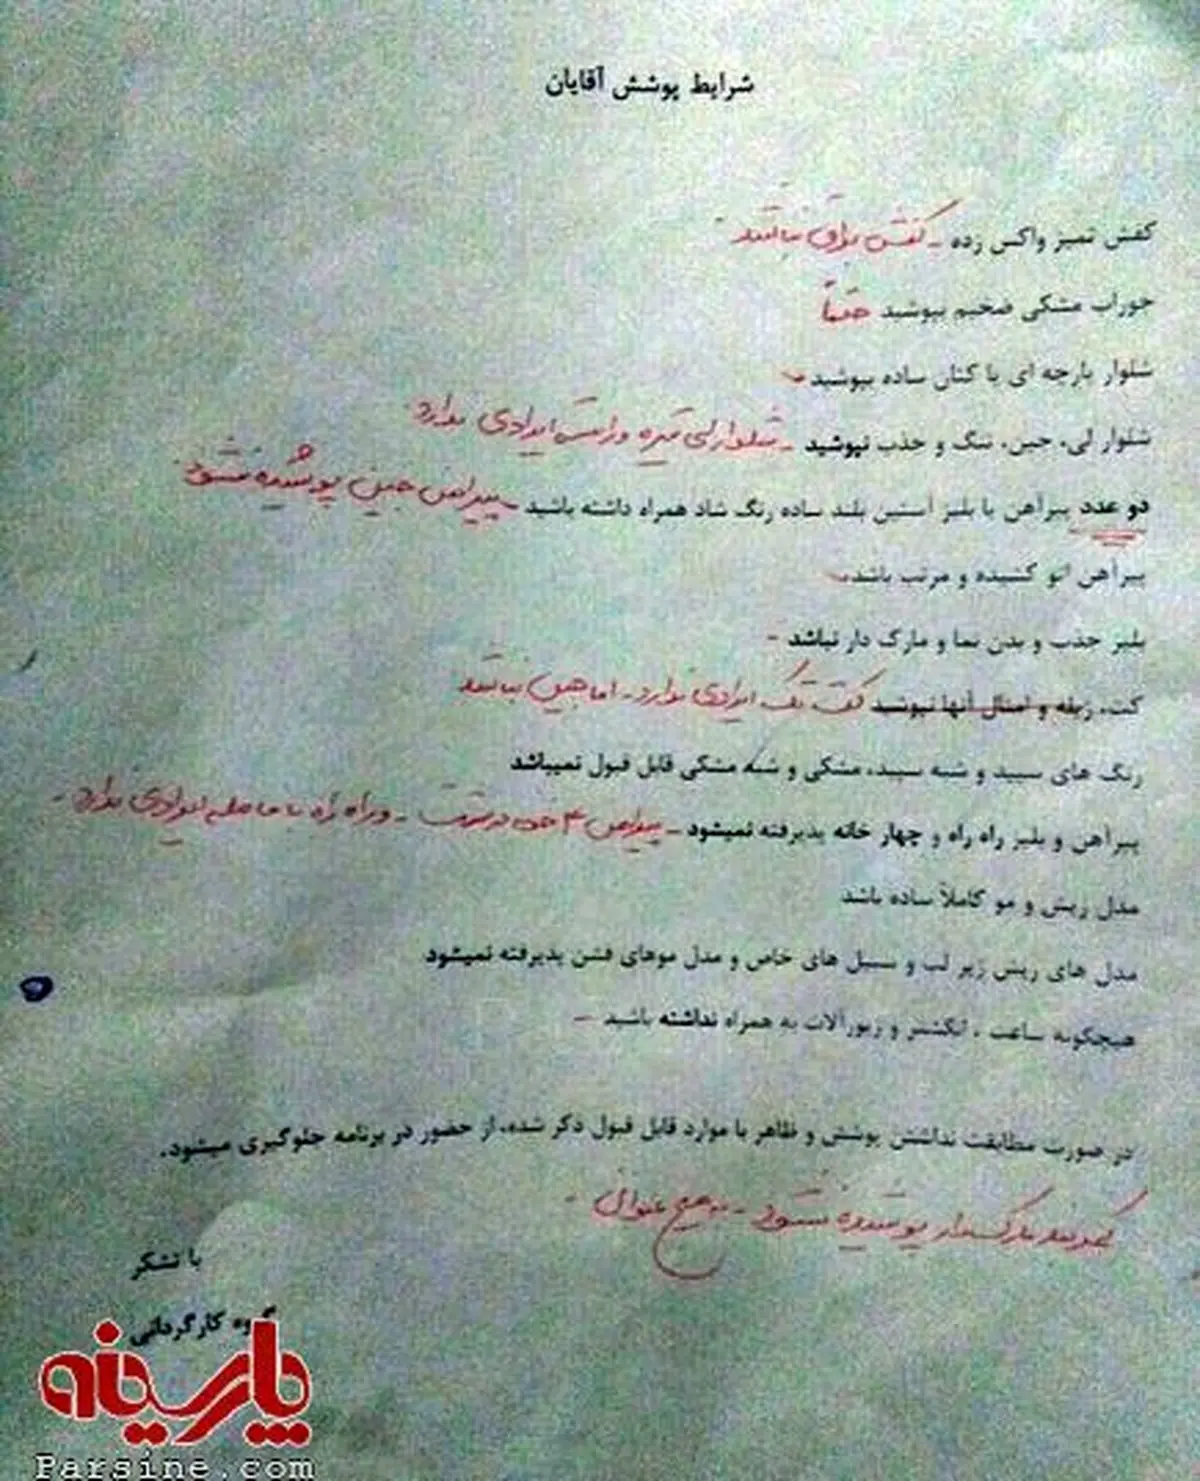 شرایط پوشش آقایان
کفش تمیز واکس زده - کفش براق نباشد.
جوراب مشکی ضخیم بپوشید حتماً
شلوار پارچه ای یا کتان ساده بپوشید
شلوار لی، جین، تنگ و جذب نپوشید - شلوار لی تیره و راسته ایرادی ندارد.
دو عدد پیرآهن یا بلیز آستین بلند ساده رنگ شاد همراه داشته باشید - پیراهن جین پوشیده نشود.
پیرآهن اتو کشیده و مرتب باشد
بلیز جذب و بدن نما و مارک دار نباشد -
کت، ژیله و امثال آنها نپوشید کت تک ایرادی ندارد - اما جین نباشد
رنگ های سپید و شبه سپید، مشکی و شبه مشکی قابل قبول نمیباشد
پیرآهن و بلیز راه راه و چهار خانه پذیرفته نمیشود - پیراهن ۴ خونه درشت - و راه راه با فاصله ایرادی ندارد -
مدل ریش و مو کاملاً ساده باشد
مدل های ریش زیر لب و سبیل های خاص و مدل موهای فشن پذیرفته نمیشود
هیچگونه ساعت ، انگشتر و زیورآلات به همراه نداشته باشید -
در صورت مطابقت نداشتن پوشش و ظاهر با موارد قابل قبول ذکر شده، از حضور در برنامه جلوگیری میشود.
مارکدار پوشیده نشود - به هیچ عنوان -
با تشکر
گروه کارگردانی
پارسینه
Parsine.com